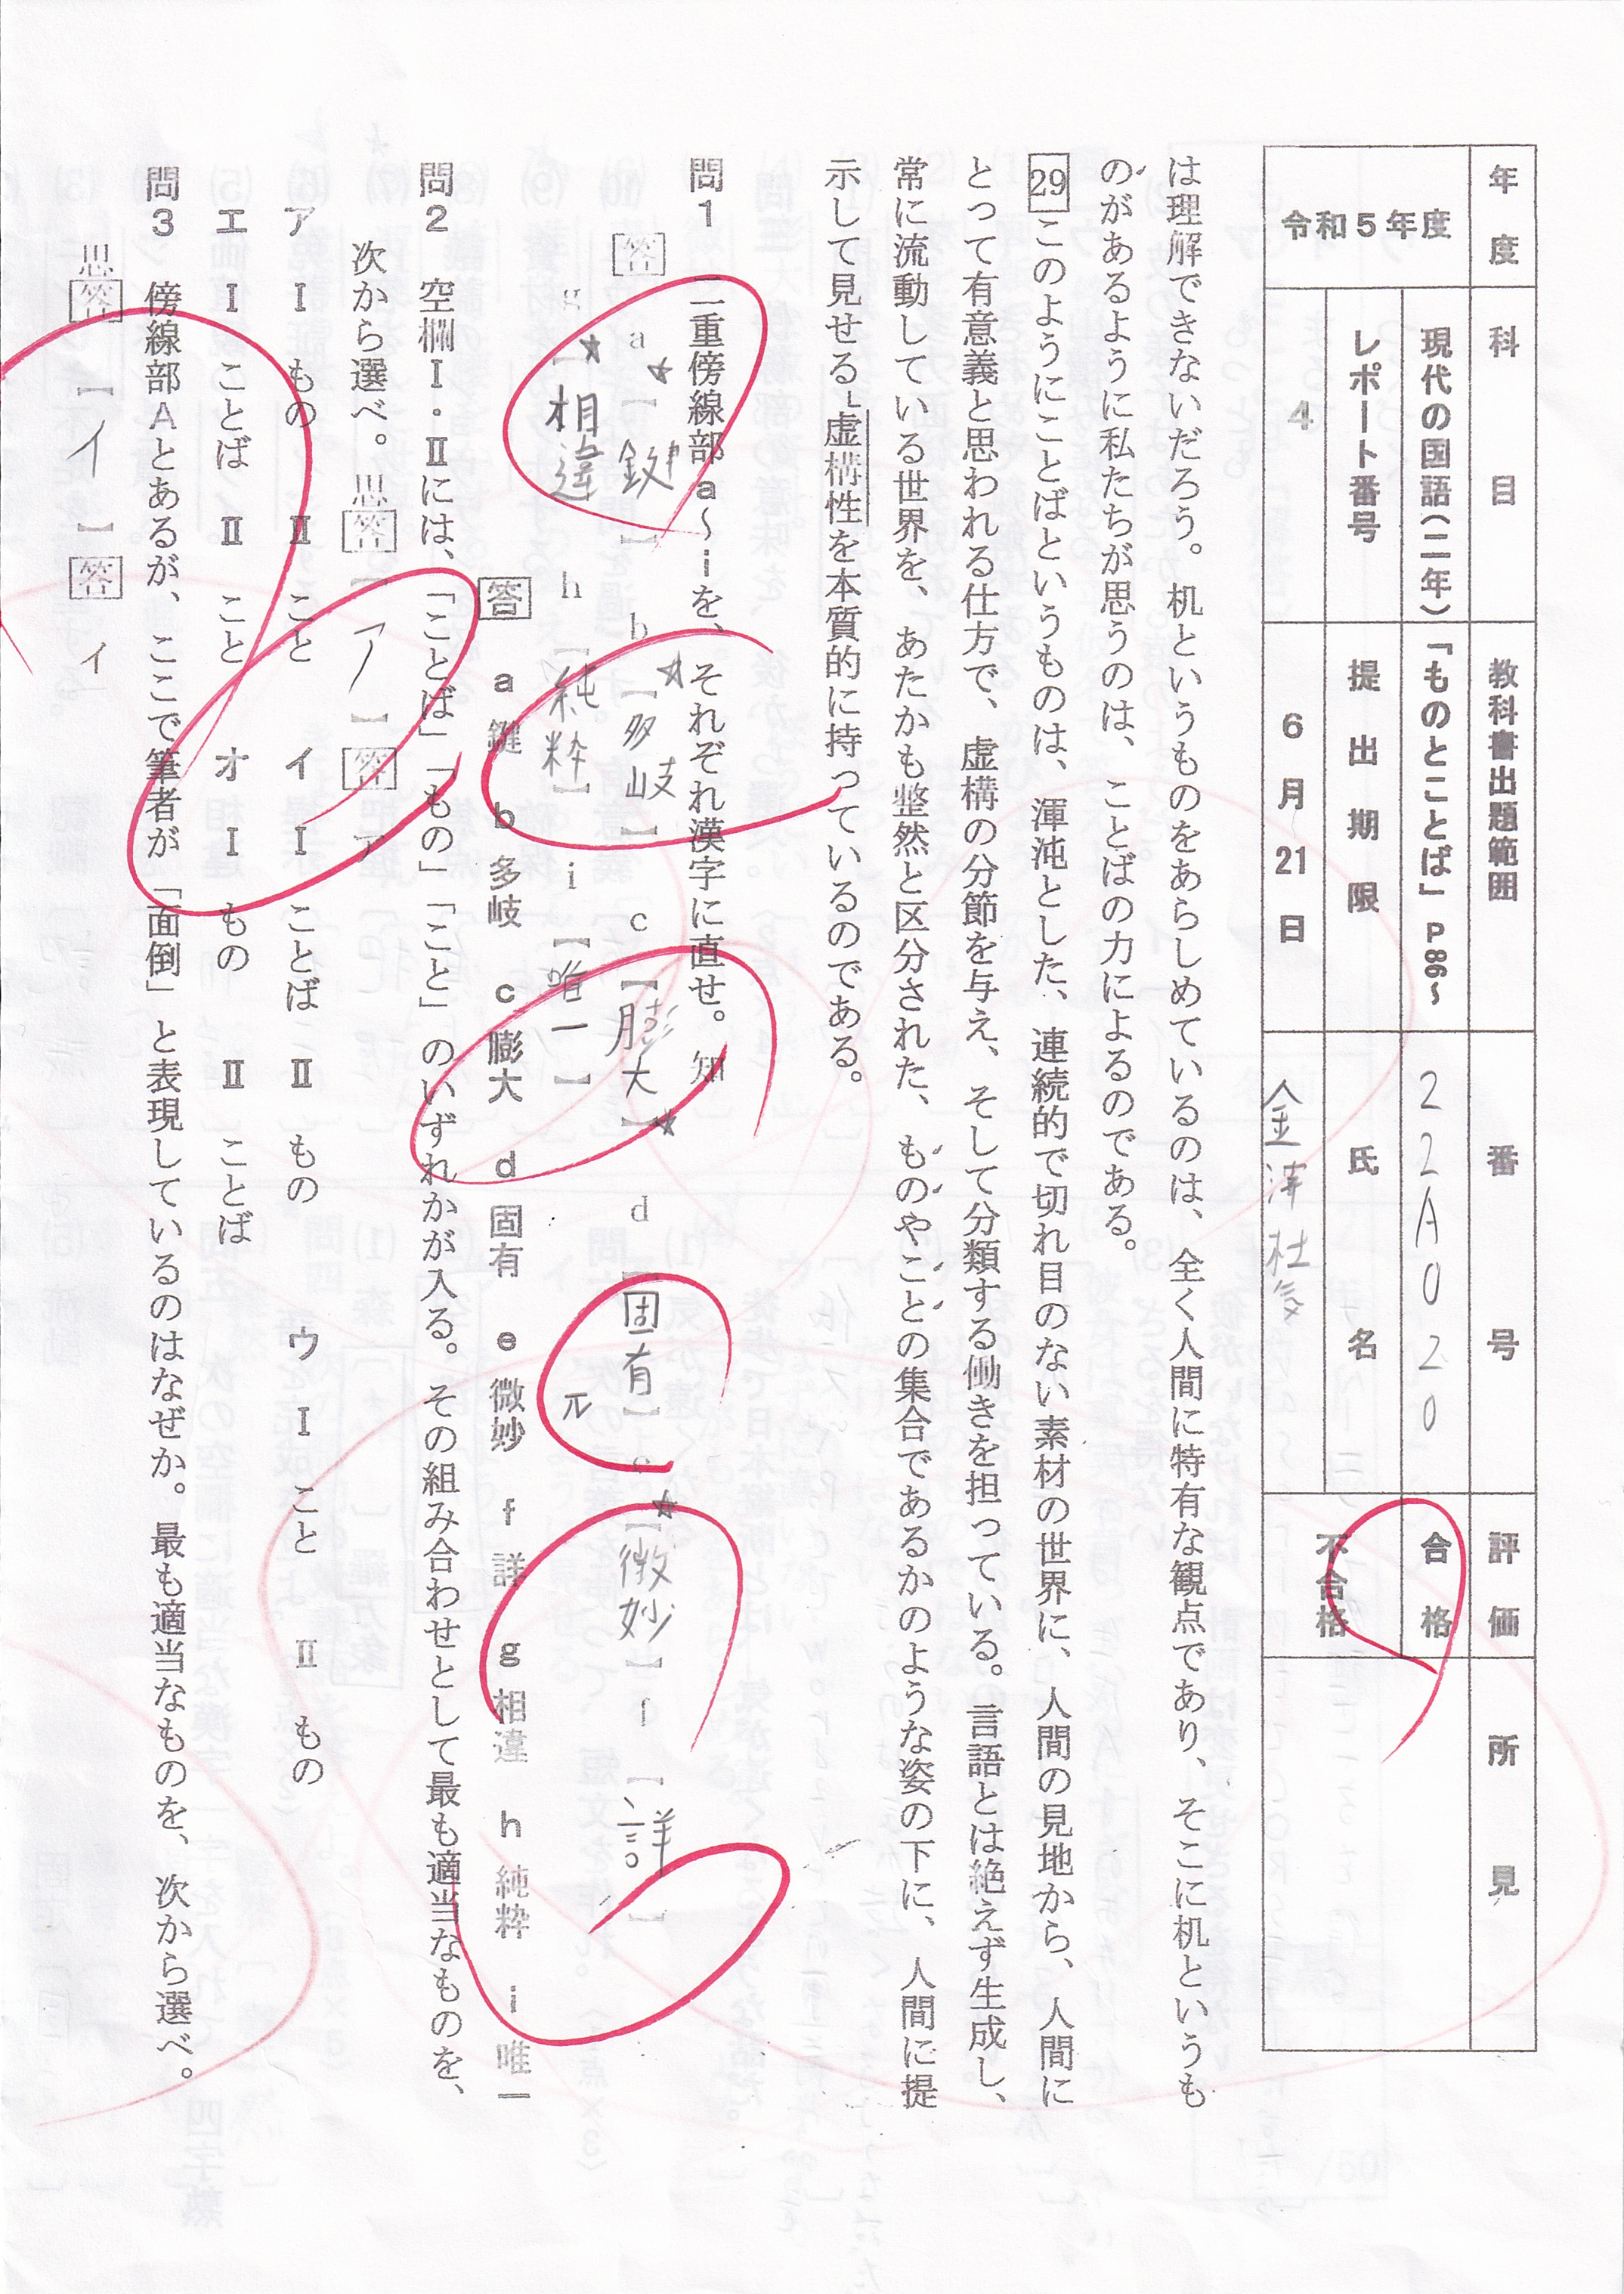 年度 科目 教科書出題範囲 番号 評価 所見
令和5年度
現代の国語(二年)「ものとことば」P86〜 22A020 合格
レポート番号 提出期限 氏名 不合格
4 6月21日
は理解できないだろう。机というものをあらしめているのは、全く人間に特有な観点であり、そこに机というも
のがあるように私たちが思うのは、ことばの力によるのである。
29このようにことばというものは、渾沌とした、連続的で切れ目のない素材の世界に、人間の見地から、人間に
とって有意義と思われる仕方で、虚構の分節を与え、そして分類する働きを担っている。言語とは絶えず生成し、
常に流動している世界を、あたかも整然と区分された、ものやことの集合であるかのような姿の下に、人間に提
示して見せる虚構性を本質的に持っているのである。
問1 二重傍線部a〜iを、それぞれ漢字に直せ。知
答 a【鍵】 b【多岐】 c【膨大】 d【固有】 e【微妙】 f【詳】
g【相違】 h【純粋】 i【唯一】
答 a鍵 b多岐 c膨大 d固有 e微妙 f詳 g相違 h純粋 i唯一
問2 空欄Ⅰ・Ⅱには、「ことば」「もの」「こと」のいずれかが入る。その組み合わせとして最も適当なものを、
次から選べ。 思答【ア】答 ア
ア Ⅰ もの Ⅱ こと イ Ⅰ ことば Ⅱ もの ウ Ⅰ こと Ⅱ もの
エ Ⅰ ことば Ⅱ こと オ Ⅰ もの Ⅱ ことば
問3 傍線部Aとあるが、ここで筆者が「面倒」と表現しているのはなぜか。最も適当なものを、次から選べ。
思答【イ】答 イ